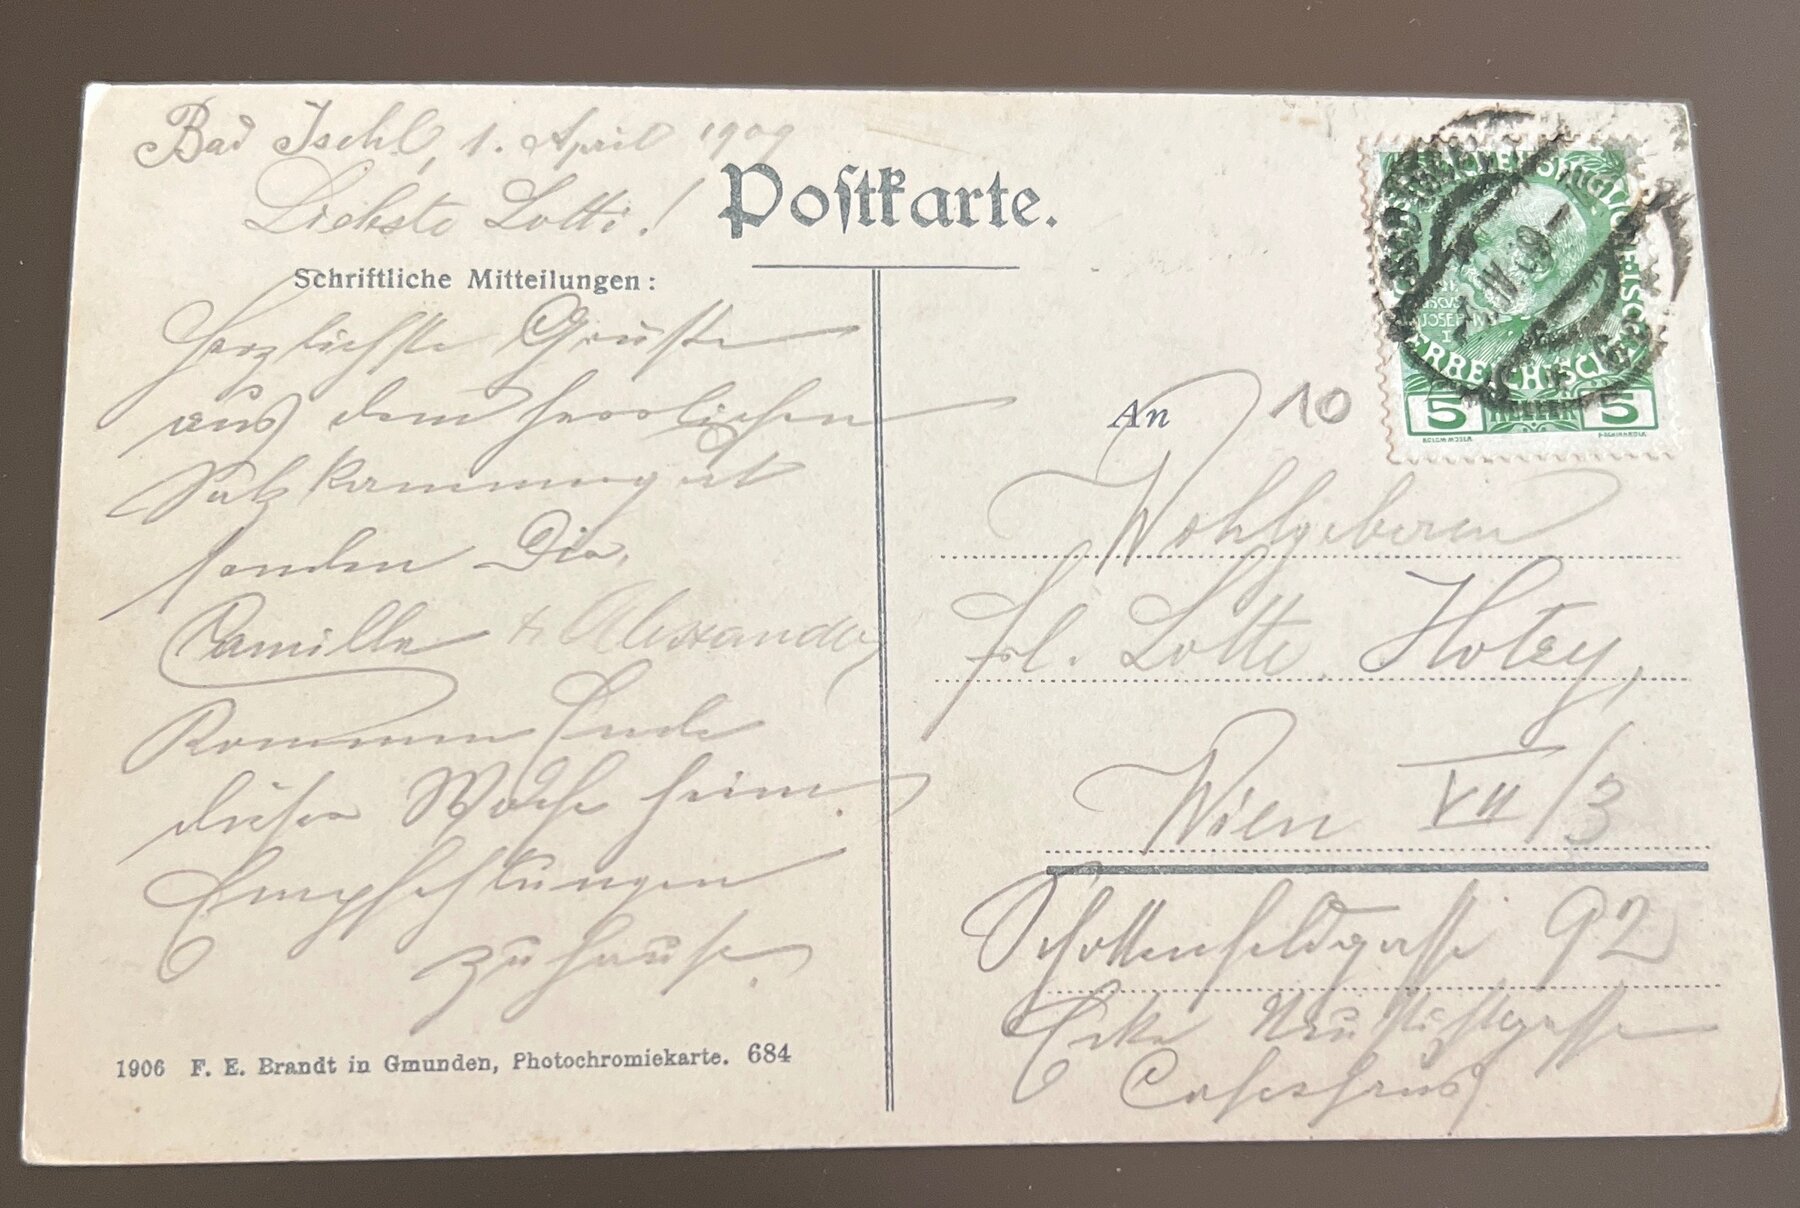 Bad Ischl, 1. April 1909
Liebste Lotti!
Postkarte.
Schriftliche Mitteilungen:
Herzlichste Grüße
aus dem herrlichen
Salzkammergut
senden Dir,
Camilla & Alexander
Kommen Ende
dieser Woche heim
Empfehlungen
zuhause.
1906 F. E. Brandt in Gmunden, Photochromiekarte. 684
5 HELLER 5
10
An
Wohlgeboren
Frl. Lotte
Wien VII/3
Schottenfeldgasse 92
Ecke Neustiftgasse